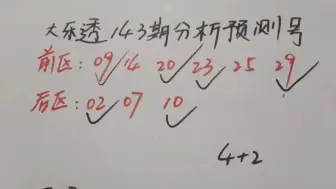 大乐透143期分析预测号
前区：09 14 20 23 25 29
后区：02 07 10
4+2